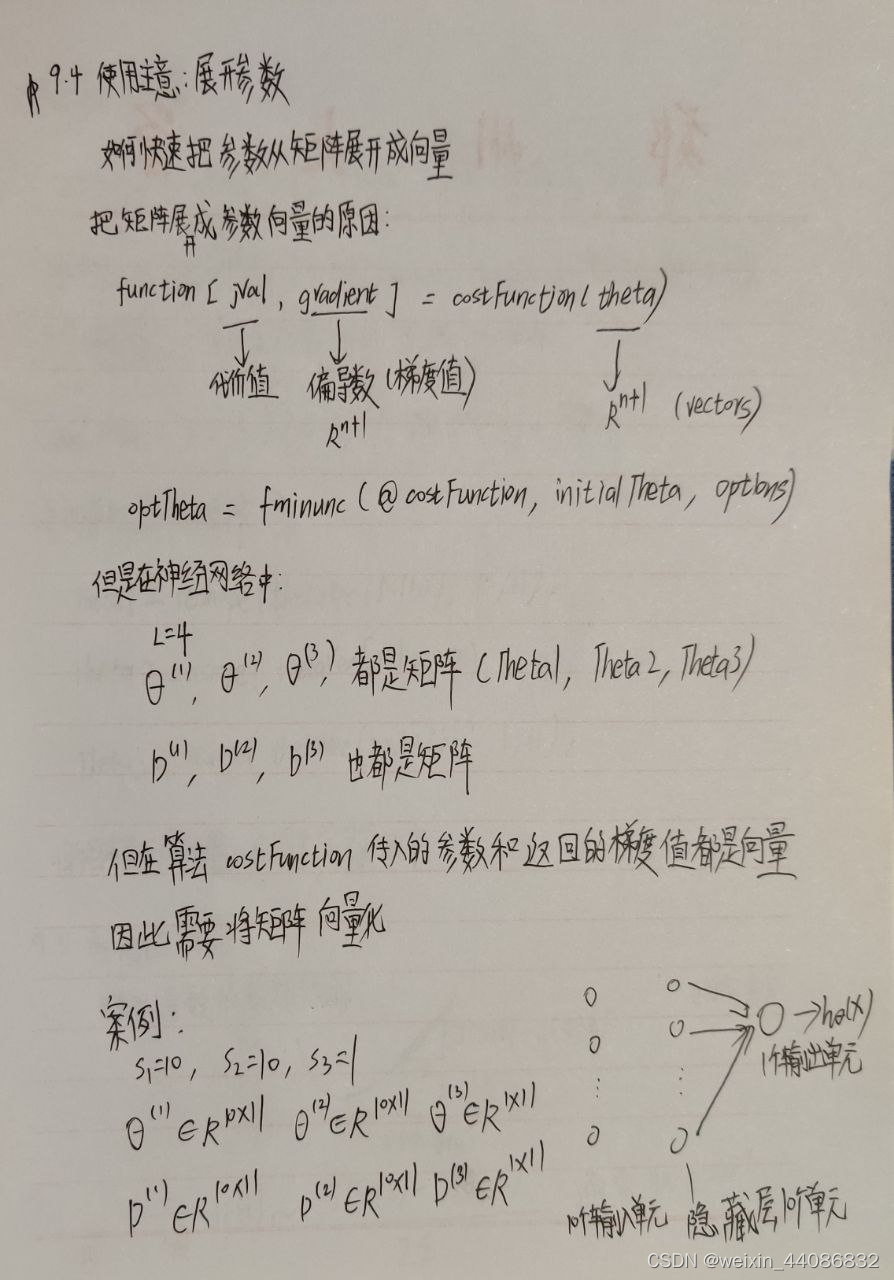 9.4 使用注意:展开参数
如何快速把参数从矩阵展开成向量
把矩阵展开成参数向量的原因:
function [ jVal , gradient ] = costFunction(theta)
代价值 偏导数(梯度值)
R^{n+1} R^{n+1} (vectors)
optTheta = fminunc(@costFunction, initialTheta, options)
但是在神经网络中:
L=4
θ^{(1)}, θ^{(2)}, θ^{(3)}, 都是矩阵 (Theta1, Theta2, Theta3)
D^{(1)}, D^{(2)}, D^{(3)} 也都是矩阵
但在算法 costFunction 传入的参数和返回的梯度值都是向量
因此需要将矩阵向量化
案例:
S₁=10, S₂=10, S₃=1
θ^{(1)}∈R^{10×11} θ^{(2)}∈R^{10×11} θ^{(3)}∈R^{1×11}
D^{(1)}∈R^{10×11} D^{(2)}∈R^{10×11} D^{(3)}∈R^{1×11}
→hθ(x)
1个输出单元
10个输入单元 隐藏层10个单元
CSDN @weixin_44086832